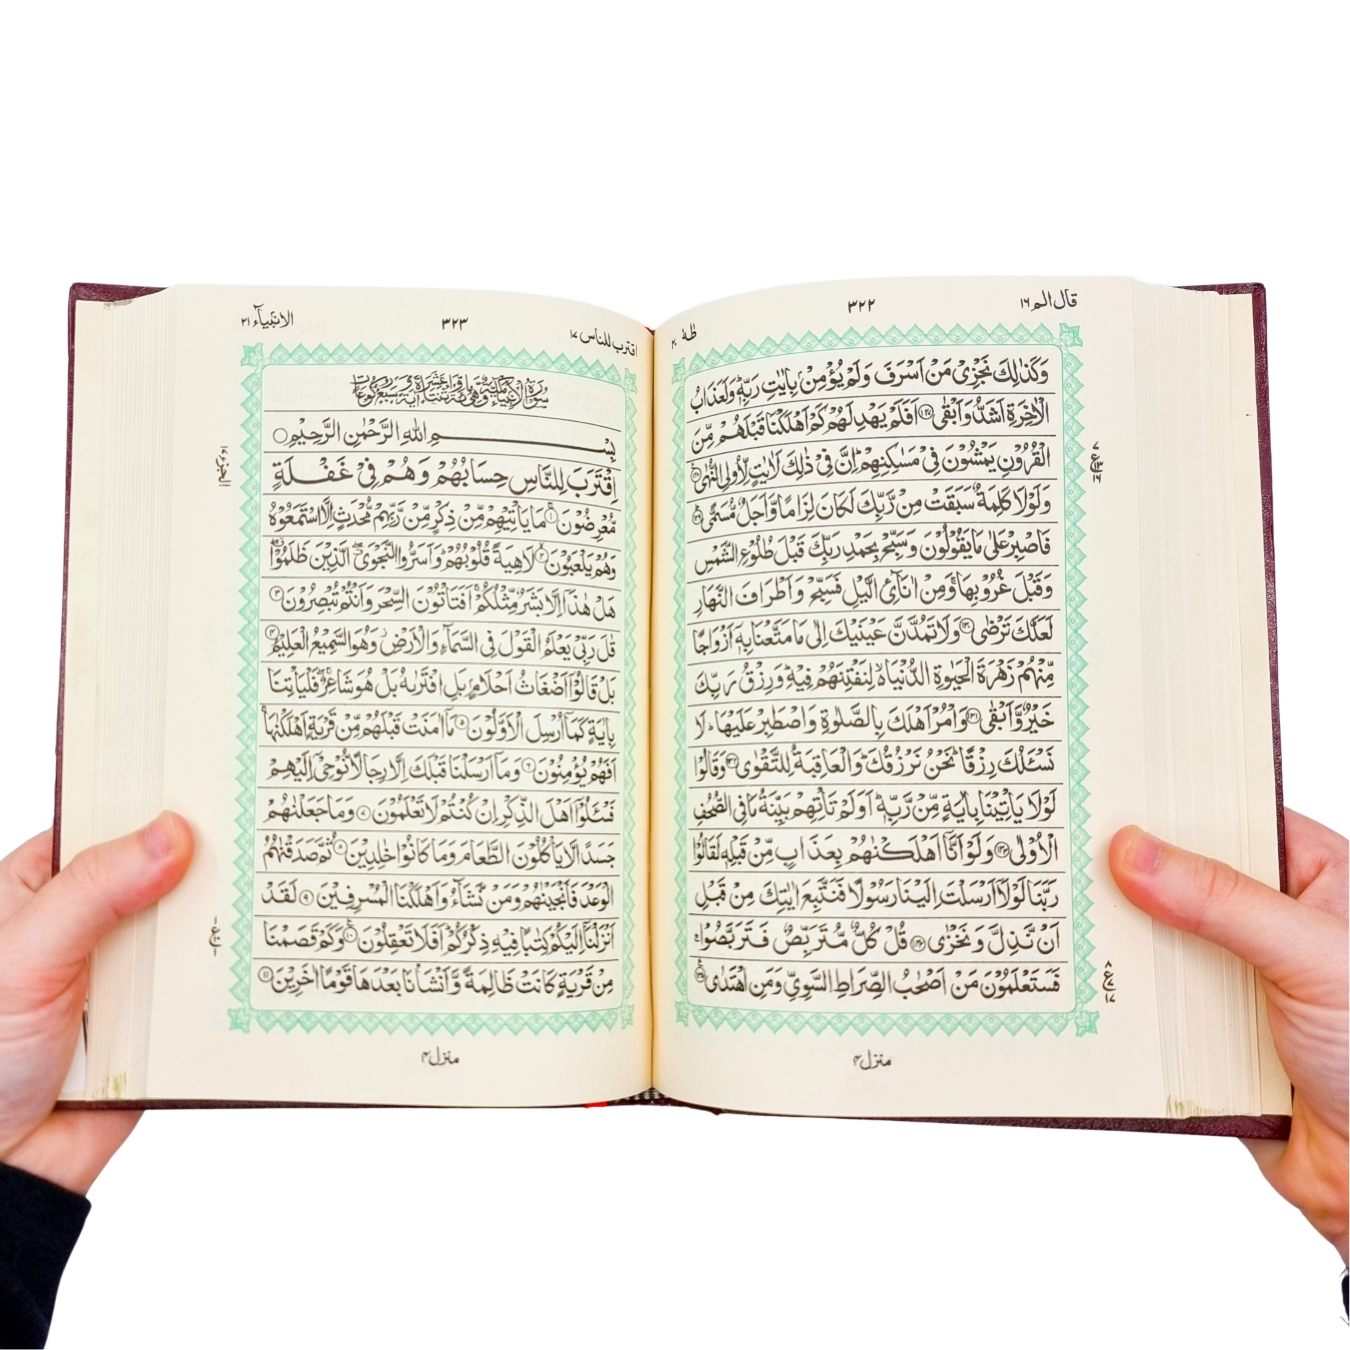 قال الم ١٦
٣٢٢
طٰهٰ ٢٠
وَكَذٰلِكَ نَجْزِىْ مَنْ اَسْرَفَ وَلَمْ يُؤْمِنْۢ بِاٰيٰتِ رَبِّهٖ ؕ وَلَعَذَابُ
الْاٰخِرَةِ اَشَدُّ وَاَبْقٰى ١٢٧ اَفَلَمْ يَهْدِ لَهُمْ كَمْ اَهْلَكْنَا قَبْلَهُمْ مِّنَ
الْقُرُوْنِ يَمْشُوْنَ فِىْ مَسٰكِنِهِمْ ؕ اِنَّ فِىْ ذٰلِكَ لَاٰيٰتٍ لِّاُولِى النُّهٰى ١٢٨
وَلَوْلَا كَلِمَةٌ سَبَقَتْ مِنْ رَّبِّكَ لَكَانَ لِزَامًا وَّاَجَلٌ مُّسَمًّى ١٢٩
فَاصْبِرْ عَلٰى مَا يَقُوْلُوْنَ وَسَبِّحْ بِحَمْدِ رَبِّكَ قَبْلَ طُلُوْعِ الشَّمْسِ
وَقَبْلَ غُرُوْبِهَا ۚ وَمِنْ اٰنَآئِ الَّيْلِ فَسَبِّحْ وَاَطْرَافَ النَّهَارِ
لَعَلَّكَ تَرْضٰى ١٣٠ وَلَا تَمُدَّنَّ عَيْنَيْكَ اِلٰى مَا مَتَّعْنَا بِهٖۤ اَزْوَاجًا
مِّنْهُمْ زَهْرَةَ الْحَيٰوةِ الدُّنْيَا ۙ لِنَفْتِنَهُمْ فِيْهِ ؕ وَرِزْقُ رَبِّكَ
خَيْرٌ وَّاَبْقٰى ١٣١ وَاْمُرْ اَهْلَكَ بِالصَّلٰوةِ وَاصْطَبِرْ عَلَيْهَا ؕ لَا
نَسْئَلُكَ رِزْقًا ؕ نَحْنُ نَرْزُقُكَ ؕ وَالْعَاقِبَةُ لِلتَّقْوٰى ١٣٢ وَقَالُوْا
لَوْلَا يَاْتِيْنَا بِاٰيَةٍ مِّنْ رَّبِّهٖ ؕ اَوَلَمْ تَاْتِهِمْ بَيِّنَةُ مَا فِى الصُّحُفِ
الْاُوْلٰى ١٣٣ وَلَوْ اَنَّاۤ اَهْلَكْنٰهُمْ بِعَذَابٍ مِّنْ قَبْلِهٖ لَقَالُوْا
رَبَّنَا لَوْلَاۤ اَرْسَلْتَ اِلَيْنَا رَسُوْلًا فَنَتَّبِعَ اٰيٰتِكَ مِنْ قَبْلِ
اَنْ نَّذِلَّ وَنَخْزٰى ١٣٤ قُلْ كُلٌّ مُّتَرَبِّصٌ فَتَرَبَّصُوْا ۚ
فَسَتَعْلَمُوْنَ مَنْ اَصْحٰبُ الصِّرَاطِ السَّوِىِّ وَمَنِ اهْتَدٰى ١٣٥
٧
ع ١٣
١٦
٨
ع ٧
١٧
منزل ٤
اقترب للناس ١٧
٣٢٣
الانبياء ٢١
بِسْمِ اللهِ الرَّحْمٰنِ الرَّحِيْمِ
اِقْتَرَبَ لِلنَّاسِ حِسَابُهُمْ وَهُمْ فِىْ غَفْلَةٍ
مُّعْرِضُوْنَ ١ مَا يَاْتِيْهِمْ مِّنْ ذِكْرٍ مِّنْ رَّبِّهِمْ مُّحْدَثٍ اِلَّا اسْتَمَعُوْهُ
وَهُمْ يَلْعَبُوْنَ ٢ لَاهِيَةً قُلُوْبُهُمْ ؕ وَاَسَرُّوا النَّجْوَى الَّذِيْنَ ظَلَمُوْا
هَلْ هٰذَاۤ اِلَّا بَشَرٌ مِّثْلُكُمْ ۚ اَفَتَاْتُوْنَ السِّحْرَ وَاَنْتُمْ تُبْصِرُوْنَ ٣
قٰلَ رَبِّىْ يَعْلَمُ الْقَوْلَ فِى السَّمَآءِ وَالْاَرْضِ وَهُوَ السَّمِيْعُ الْعَلِيْمُ ٤
بَلْ قَالُوْۤا اَضْغَاثُ اَحْلَامٍۭ بَلِ افْتَرٰىهُ بَلْ هُوَ شَاعِرٌ ۖ فَلْيَاْتِنَا
بِاٰيَةٍ كَمَاۤ اُرْسِلَ الْاَوَّلُوْنَ ٥ مَاۤ اٰمَنَتْ قَبْلَهُمْ مِّنْ قَرْيَةٍ اَهْلَكْنٰهَا
اَفَهُمْ يُؤْمِنُوْنَ ٦ وَمَاۤ اَرْسَلْنَا قَبْلَكَ اِلَّا رِجَالًا نُّوْحِىْۤ اِلَيْهِمْ
فَسْئَلُوْۤا اَهْلَ الذِّكْرِ اِنْ كُنْتُمْ لَا تَعْلَمُوْنَ ٧ وَمَا جَعَلْنٰهُمْ
جَسَدًا لَّا يَاْكُلُوْنَ الطَّعَامَ وَمَا كَانُوْا خٰلِدِيْنَ ٨ ثُمَّ صَدَقْنٰهُمُ
الْوَعْدَ فَاَنْجَيْنٰهُمْ وَمَنْ نَّشَآءُ وَاَهْلَكْنَا الْمُسْرِفِيْنَ ٩ لَقَدْ
اَنْزَلْنَاۤ اِلَيْكُمْ كِتٰبًا فِيْهِ ذِكْرُكُمْ ؕ اَفَلَا تَعْقِلُوْنَ ١٠ وَكَمْ قَصَمْنَا
مِنْ قَرْيَةٍ كَانَتْ ظَالِمَةً وَّاَنْشَاْنَا بَعْدَهَا قَوْمًا اٰخَرِيْنَ ١١
منزل ٤